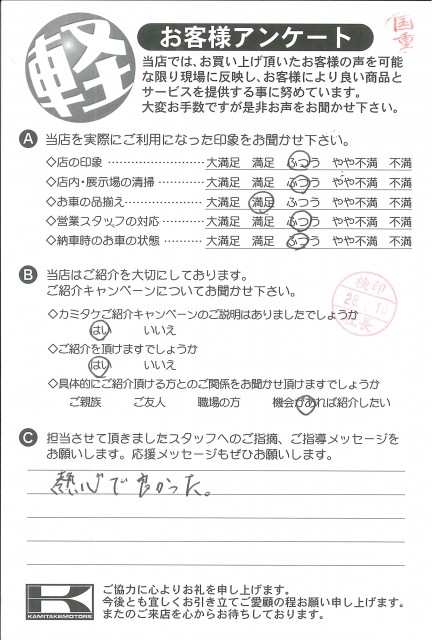 軽
お客様アンケート
国重
当店では、お買い上げ頂いたお客様の声を可能
な限り現場に反映し、お客様により良い商品と
サービスを提供する事に努めています。
大変お手数ですが是非お声をお聞かせ下さい。
A 当店を実際にご利用になった印象をお聞かせ下さい。
◇店の印象 ………………… 大満足 満足 ふつう やや不満 不満
◇店内・展示場の清掃 ………… 大満足 満足 ふつう やや不満 不満
◇お車の品揃え ……………… 大満足 満足 ふつう やや不満 不満
◇営業スタッフの対応 ………… 大満足 満足 ふつう やや不満 不満
◇納車時のお車の状態 ………… 大満足 満足 ふつう やや不満 不満
B 当店はご紹介を大切にしてあります。
ご紹介キャンペーンについてお聞かせ下さい。
検印
28.
社長
◇カミタケご紹介キャンペーンのご説明はありましたでしょうか
はい いいえ
◇ご紹介を頂けますでしょうか
はい いいえ
◇具体的にご紹介頂ける方とのご関係をお聞かせ頂けますでしょうか
ご親族 ご友人 職場の方 機会があれば紹介したい
C 担当させて頂きましたスタッフへのご指摘、ご指導メッセージを
お願いします。応援メッセージもぜひお願いします。
熱心で良かった。
K
KAMITAKEMOTORS
ご協力に心よりお礼を申し上げます。
今後とも宜しくお引き立てご愛顧の程お願い申し上げます。
またのご来店を心からお待ちしております。